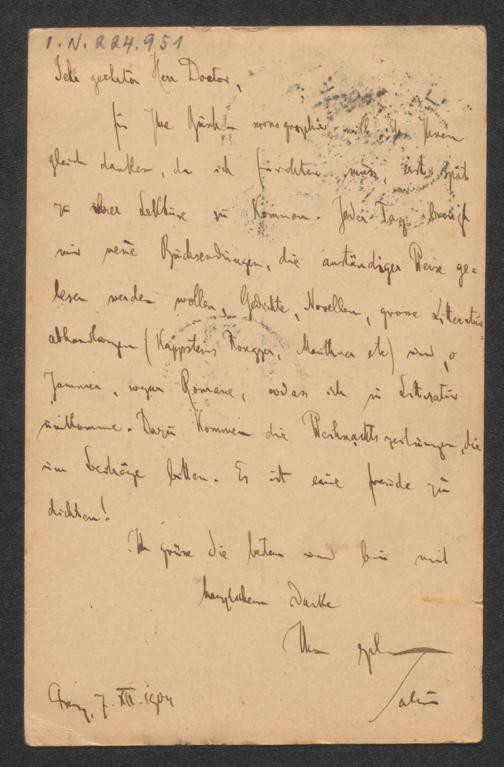 I.N. 224.951
Sehr geehrter Herr Doctor,
für Ihre monographie will ich Ihnen
gleich danken, da ich fürchten muss, erst spät
zu ihrer Lektüre zu kommen. Jeder Tag bringt
mir neue Büchsendungen, die anständiger Weise ge-
lesen werden wollen, Gedichte, Novellen, grosse Litteratur-
abhandlungen (Kappsteins, Mauthner etc) und, o
Jammer, sogar Romane, sodass ich in Litteratur
umkomme. Dazu kommen die Weihnachtszeitungen, die
um Beiträge bitten. Es ist eine freude zu
dichten!
Ich grüsse Sie bestens und bin mit
herzlichem Danke
Ihr
Salus
Prag, 7. XII. 1904